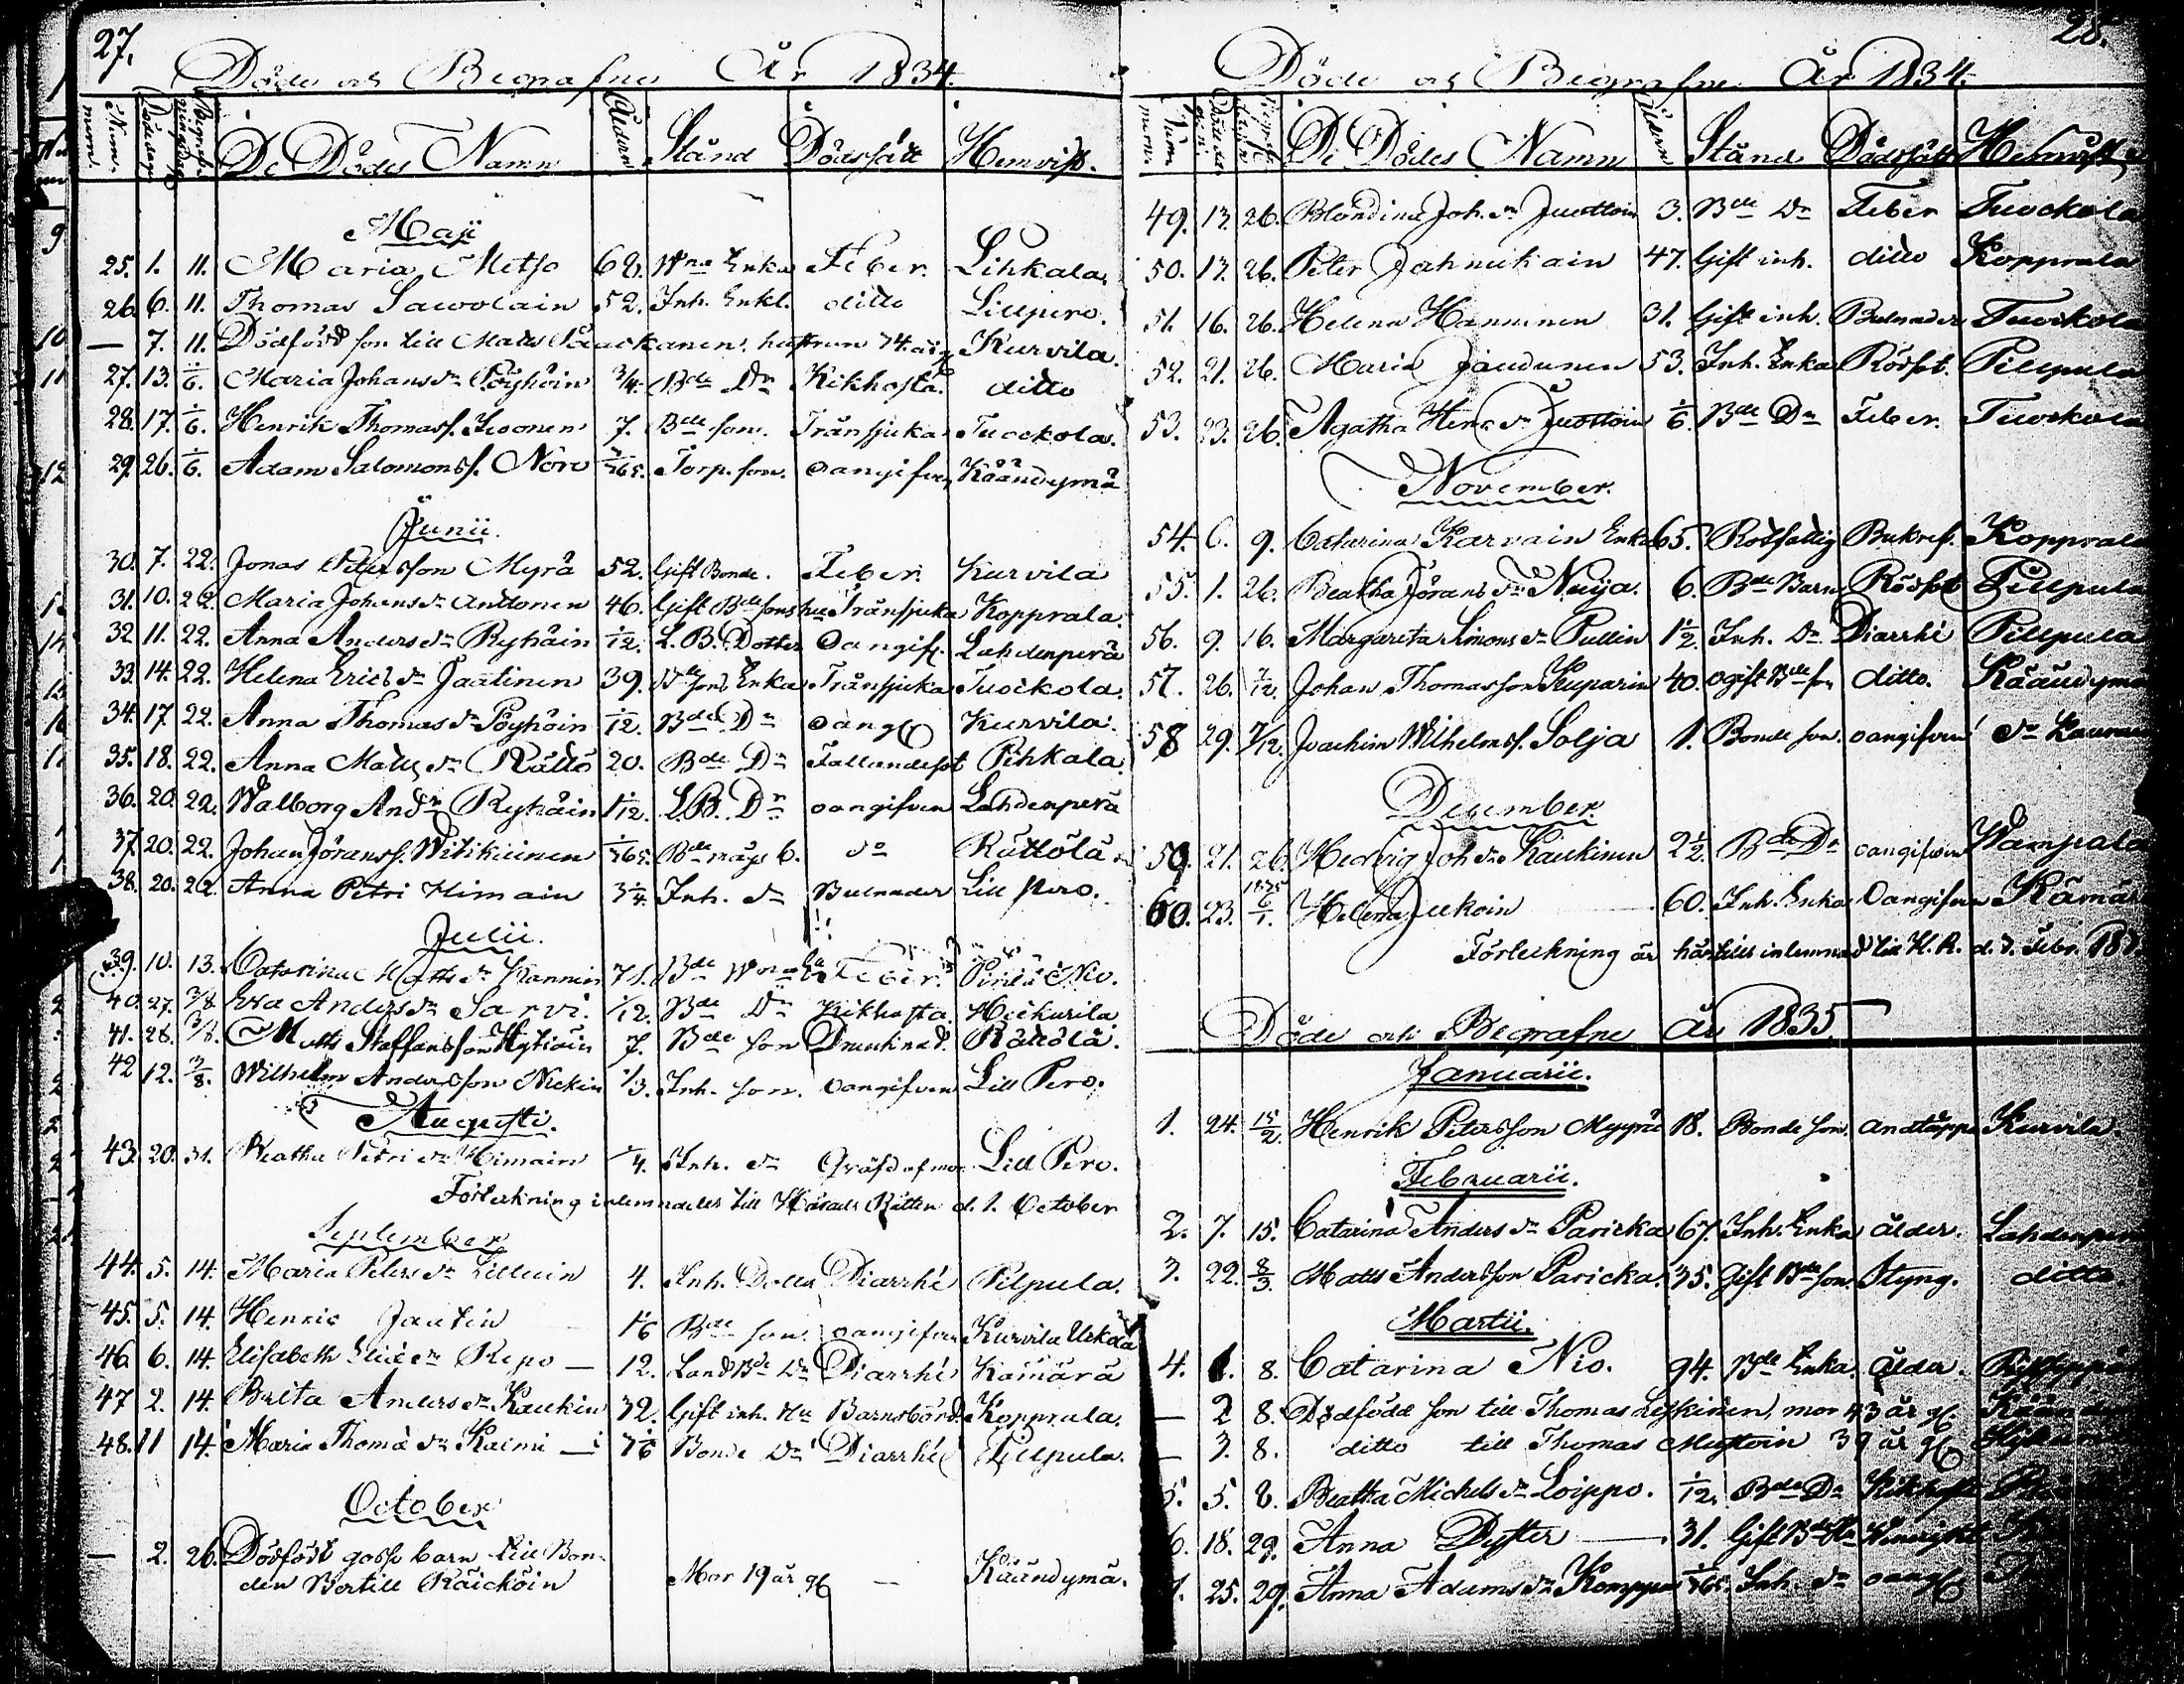 27.
Döde och Begrafne År 1834.
Num̅ mern. Dödedag Begrafningsdag De Dödes Namn Åldern Stånd Dödssätt Hemvist.
Maji
25. 1. 11. Maria Metso 68. Enka Feber. Pihkala.
26. 6. 11. Thomas Sawolain 52. Inh. Enkl. ditto Lillpero.
— 7. 11. Dödfödd son till Mats hustrun 74. år Kurvila.
27. 13. 1/6. Maria Johans dr Pöyhöin 3/4. Bde Dr Kikhosta. ditto
28. 17. 1/6. Henrik Thomass. Ilvonen 7. Bde son. Trånsjuka Tuockola.
29. 26. 1/6. Adam Salomonss. Noro 7/365. Torp. son. oangifven Käändymä
Junii.
30. 7. 22. Jonas Petersson Myrä 52. Gift Bonde. Feber. Kurvila
31. 10. 22. Maria Johans dr Anttonen 46. Gift Bde sons hu Trånsjuka Kopprala.
32 11. 22. Anna Anders dr Ryhäin 1/12. L. B. Dotter Oangif. Lahdenperä
33. 14. 22. Helena Erics dr Jaatinen 39. Bde sons Enka Trånsjuka Tuockola.
34. 17 22. Anna Thomas dr Pöyhöin 1/12. Bde Dr oang Kurvila.
35. 18. 22. Anna Mats dr Rättö 20. Bde Dr Fallandesot Pihkala.
36. 20. 22. Walborg And dr Ryhäin 1/12. L.B. Dr oangifven Lahdenperä
37. 20. 22. Johan Jöranss. Witikainen 1/365. Bde mågs b. do Rättölä
38. 20. 22. Anna Petri Himain 3/4. Inh. dr Bulnader Lill Pero.
Julii.
39. 10. 13. Catarina Matts dr Hannin 71. Bde Feber.
40. 27. 3/8. Eva Anders dr Sarvi. 1/12. Bde Dr Kikhosta. Heikurila
41. 28. 3/8. Matts Staffansson Hytiäin 7. Bde son Drunknad. Rätöla.
42 12. 3/8. Wilhelm Andersson Nickin 1/3. Inh. son. oangifven Lill Pero.
Augusti.
43. 20. 31. Beatha Petri dr Himain 1/4. Inh. dr Qväfd af mo. Lill Pero.
Förteckning inlemnades till Härads Rätten d. 1. October
September
44. 5. 14. Maria Peters dr 4. Inh. Dotter Diarrhé Pilpula.
45. 5. 14. Henric Jautin 1/6 Bde son. oangifven Kurvila
46. 6. 14. Elisabeth Elia dr Repo — 12. Land Bde Dr Diarrhé Kämärä
47 2. 14. Brita Anders dr Kaukin 32. Gift inh. Hu Barnsbörd. Kopprala.
48. 11 14. Maria Thoma dr Kaimi — 3 1/6 Bonde Dr Diarrhé Pillpula.
October
— 2. 26. Dödfödt gosse barn till Bon-
den Bertill Räicköin Mor 19 år — Käändymä.
28.
Döde och Begrafne År 1834.
De Dödes Namn Åldern Stånd Dödssätt Hemvist
49. 13. 26. Blondina Joh. dr Juottoin 3. Bde Dr Feber Tuockola
50. 17. 26. Peter Jahnukain 47. Gift inh. ditto Kopprala
51. 16. 26. Helena Hannunen 31. Gift inh. Bulnader Tuockola
52. 21. 26. Maria Jaudunen 53. Inh. Enka Rödsot. Pillpula
53. 23. 26. Agatha Henr dr Juottoin 1/6. Bde Dr Feber. Tuockola
November.
54. 6. 9. Catarina Karvain Enka 65. Rotfattig Bukref. Kopprala
55. 1. 26. Beatha Jörans dr Nuija. 6. Bde Barn Rödsot Pillpula
56. 9. 16. Margareta Simons dr Pullin 1 1/2. Inh. Dr. Diarrhé Pillpula
57. 26. 7/12. Johan Thomasson Kuparin 40. ogift Bde son ditto. Käändymä
58 29. 7/12. Joachim Wilhelmss. Solja 1. Bonde son. oangifven
December.
59. 21. 26. Hedvig Joh dr Kaukinen 2 1/2. Bde Dr oangifven Wampala
60. 23. 1835 6/1. Helena Jukoin 60. Inh. Enka Oangifven Kämär
Förteckning är härtills inlemnad till H. R. d. 3. Febr. 183
Döde och Begrafne År 1835.
Januarii.
1. 24. 15/2. Henrik Petersson Myyrä 18. Bonde son. andtäppa Kurvila.
Februarii.
2. 7. 15. Catarina Anders dr Paricka 67. Inh. Enka ålder. Lahdenperä
3. 22. 8/3. Matts Andersson Paricka. 35. Gift Bde son. Styng. ditto
Martii.
4. 1. 8. Catarina Nio. 94. Bde Enka. Ålder.
— 2 8. Dödfödd son till Thomas Leskinen, mor 43 år
— 3. 8. ditto till Thomas Mustoin 39 år
5. 5. 8. Beatha Michels dr Loippo. 1/12. Bde Dr Kikhosta
6. 18. 29. Anna Dyster — 31. Gift Bde
7. 25. 29. Anna Adams dr Komppa 1/365. Inh. dr oang